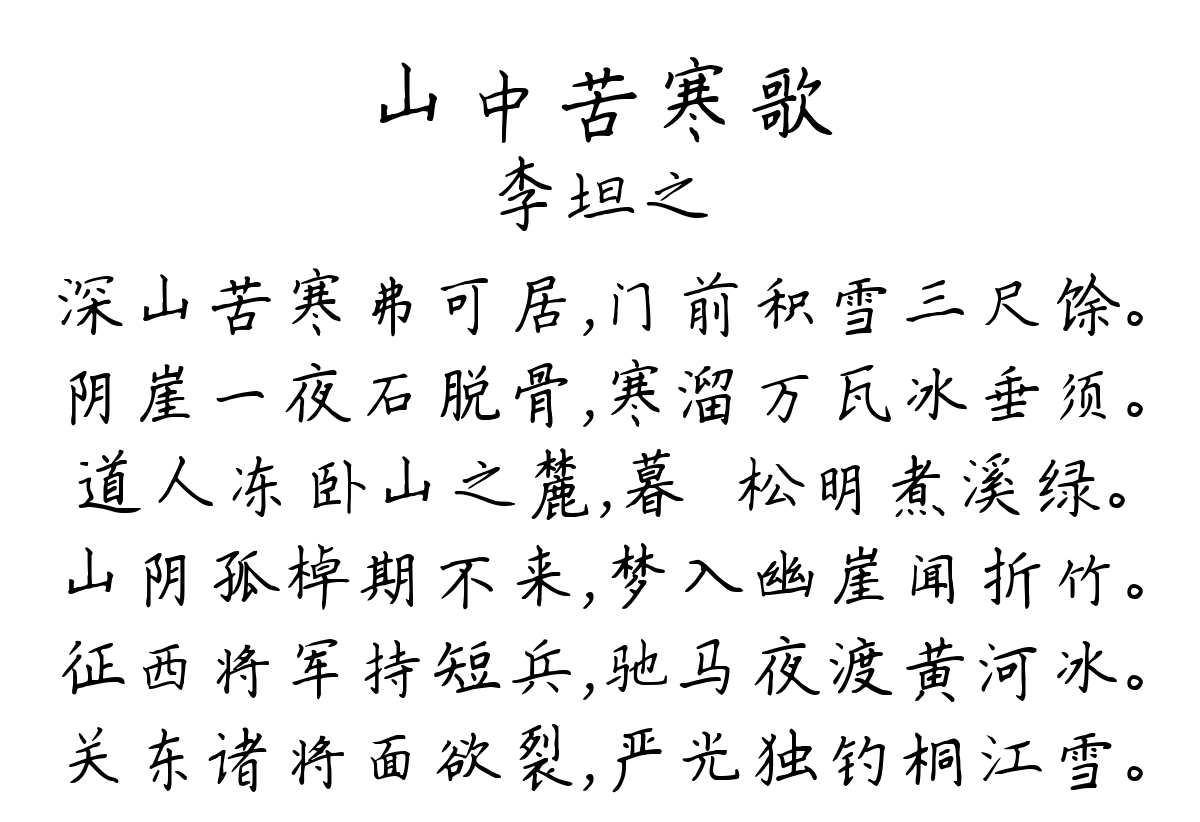 山中苦寒歌
李坦之
深山苦寒弗可居,门前积雪三尺馀。
阴崖一夜石脱骨,寒溜万瓦冰垂须。
道人冻卧山之麓,暮 松明煮溪绿。
山阴孤棹期不来,梦入幽崖闻折竹。
征西将军持短兵,驰马夜渡黄河冰。
关东诸将面欲裂,严光独钓桐江雪。